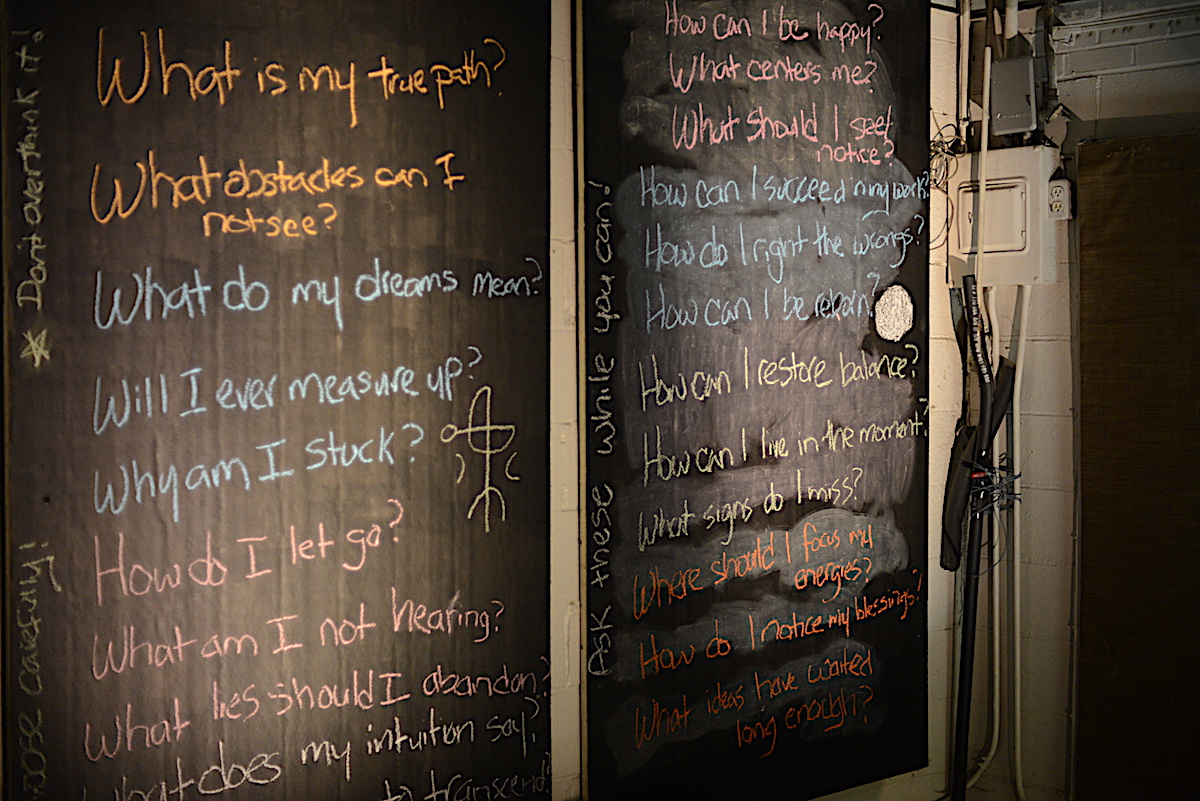 * Don't overthink it!
oose carefully!
What is my true path?
What obstacles can I
not see?
What do my dreams mean?
Will I ever measure up?
Why am I stuck?
How do I let go?
What am I not hearing?
What lies should I abandon?
What does my intuition say?
to transcend?
Ask these while you can!
How can I be happy?
What centers me?
What should I
notice?
How can I succeed in my work?
How do I right the wrongs?
How can I be
How can I restore balance?
How can I live in the moment?
What signs do I miss?
Where should I focus my
energies?
How do I notice my blessings?
What ideas have waited
long enough?